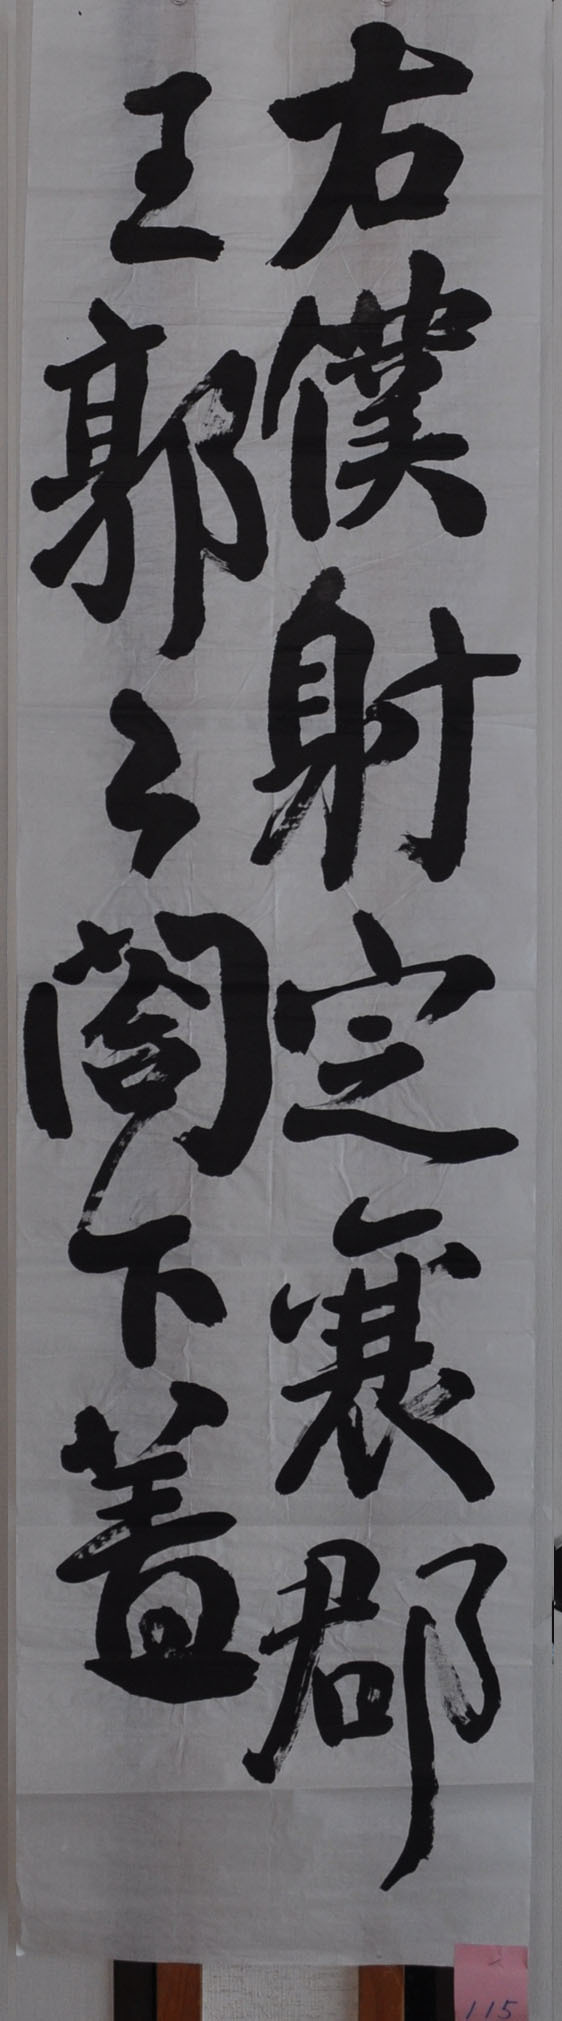 右僕射定襄郡
王郭之閤下蓋
115